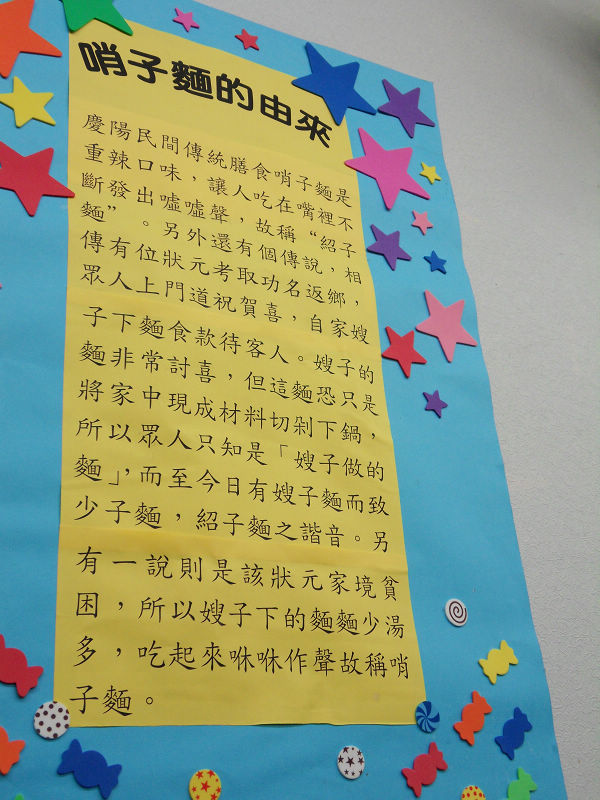 哨子麵的由來
慶陽民間傳統膳食哨子麵是
重辣口味，讓人吃在嘴裡不
斷發出噓噓聲，故稱“紹子
麵”。另外還有個傳說，相
傳有位狀元考取功名返鄉，
眾人上門道祝賀喜，自家嫂
子下麵食款待客人。嫂子的
麵非常討喜，但這麵恐只是
將家中現成材料切剁下鍋，
所以眾人只知是「嫂子做的
麵」，而至今日有嫂子麵而致
少子麵，紹子麵之諧音。另
有一說則是該狀元家境貧
困，所以嫂子下的麵麵少湯
多，吃起來咻咻作聲故稱哨
子麵。